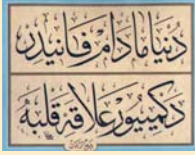 دنیا مادام فانیدر
دكمییور علاقۀ قلبه